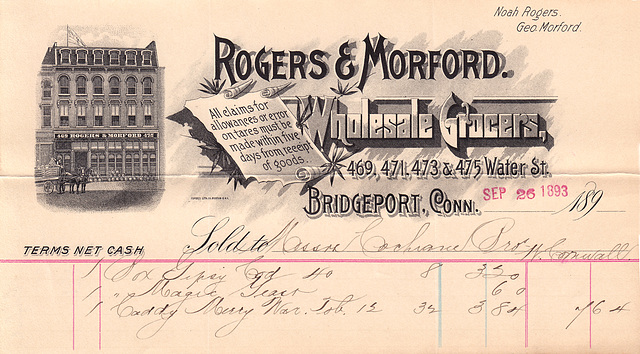 Noah Rogers.
Geo. Morford.
ROGERS & MORFORD.
469 ROGERS & MORFORD 475
All claims for
allowances or error
on tares must be
made within five
days from receipt
of goods.
Wholesale Grocers,
469, 471, 473 & 475 Water St.
BRIDGEPORT, CONN. SEP 26 1893 189
TERMS NET CASH
Sold to Messrs Cochrane Bros W. Cornwall
1 Box Gipsy 40 8 3 20
1 " Magic Yeast 60
1 Caddy War. Tob. 12 32 3 84 7 64